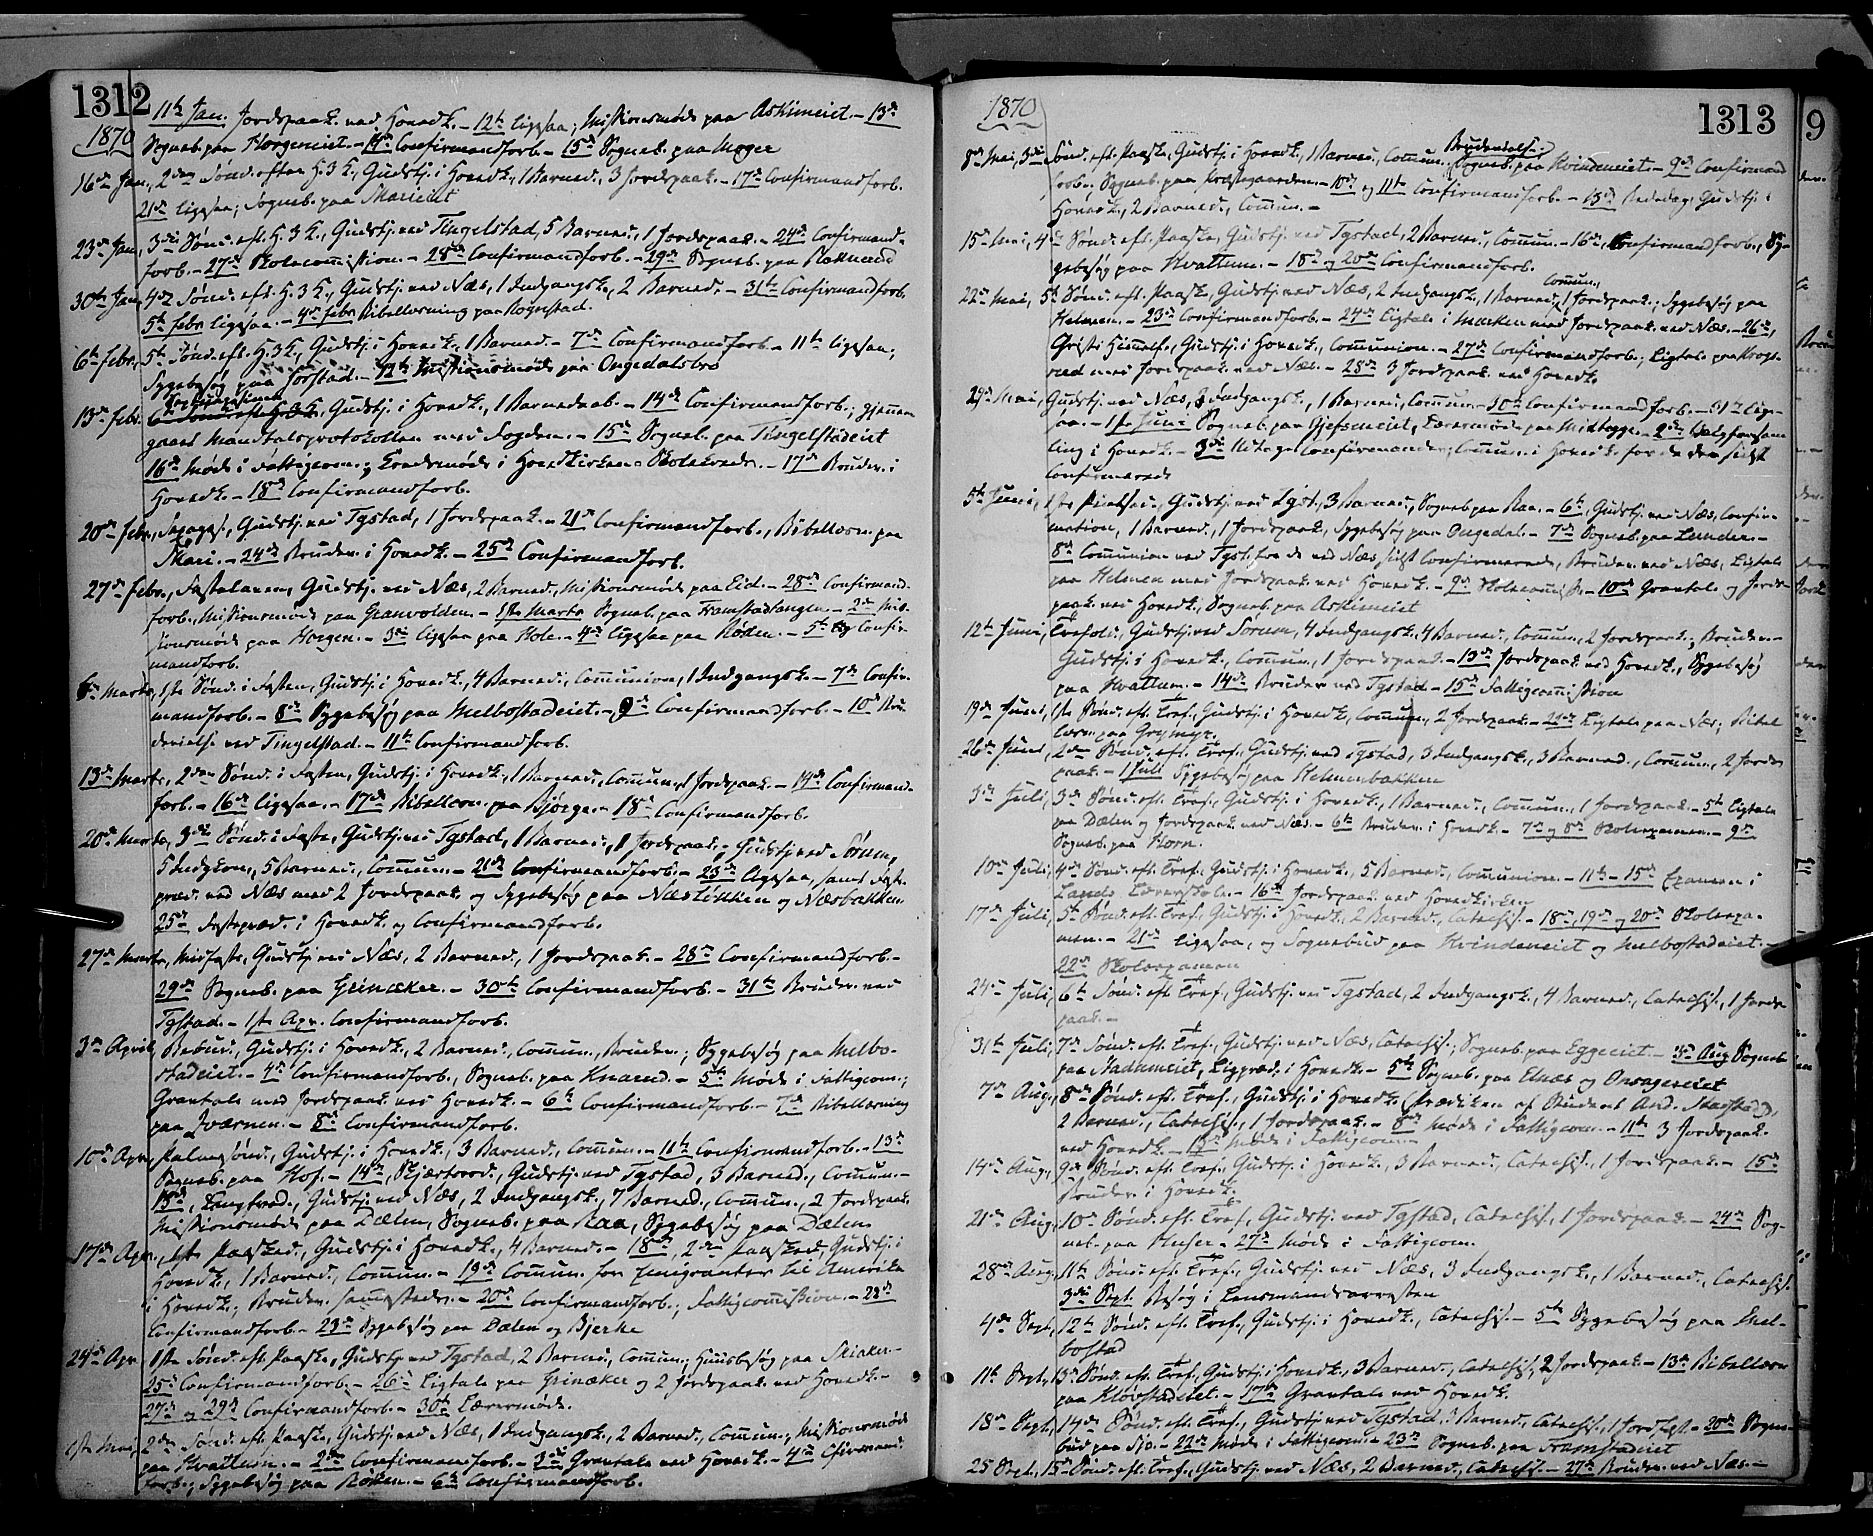 1312
1870
11te Jan. Jordspaak. ved Hovedk. – 12te Ligesaa; Missionsmøde paa Askimeiet. – 13de
Sogneb. paa Horgeneiet. – 14de Confirmandforb. – 15de Sogneb. paa Moger
16de Jan., 2den Sønd. efter H.3K., Gudstj. i Hovedk., 1 Barned., 3 Jordspaak. – 17de Confirmandforb.
21de Ligesaa; Sogneb. paa
23de Jan., 3die Sønd. eft. H.3K., Gudstj. ved Tingelstad, 5 Barned., 1 Jordspaak. – 24de Confirmand-
forb. – 27de Skolecommission. – 28de Confirmandforb. – 29de Sogneb. paa
30te Jan., 4de Sønd. eft. H.3K., Gudstj. ved Næs, 1 Indgangsk., 2 Barned. – 31te Confirmandforb.
5te Febr. Ligesaa. – 4de Febr. Bibellæsning paa Rognstad.
6te Febr., 5te Sønd. eft. H.3K., Gudstj. i Hovedk., 1 Barned. – 7de Confirmandforb. – 11te Ligesaa;
Sygebesøg paa Horstad. – 12te Missionsmøde paa Ongedalsbro
13de Febr. Septuagesima, Gudstj. i Hovedk., 1 Barnedaab. – 14de Confirmandforb.; gjennem-
gaaet Mandtalsprotokollen med Fogden. – 15de Sogneb. paa Tingelstadeiet
16de Møde i Fattigcom.; Formøde i Hovedkirkens Skolekreds. – 17de Brudev. i
Hovedk. – 18de Confirmandforb.
20de Febr., Sexages., Gudstj. ved Tgstad, 1 Jordspaak. – 21de Confirmandforb., Bibellæsn. paa
– 24de Brudev. i Hovedk. – 25de Confirmandforb.
27de Febr., Fastelavn, Gudstj. ved Næs, 2 Barned., Missionsmøde paa Eid. – 28de Confirmand-
forb., Missionsmøde paa Granvolden. – 1ste Marts Sogneb. paa Framstadtangen. – 2den Mis-
sionsmøde paa Horgen. – 3die Ligesaa paa Hole. – 4de Ligesaa paa Røken. – 5te Confir-
mandforb.
6te Marts, 1ste Sønd. i Fasten, Gudstj. i Hovedk., 4 Barned., Communion, 1 Indgangsk. – 7de Confir-
mandforb. – 8de Sygebesøg paa Melbostadeiet. – 9de Confirmandforb. – 10de Bru-
devielse ved Tingelstad. – 11te Confirmandforb.
13de Marts, 2den Sønd. i Fasten, Gudstj. i Hovedk., 1 Barned., Commun., 1 Jordspaak. – 14de Confirmand-
forb. – 16de Ligesaa. – 17de Bibellæsn. paa Bjørge. – 18de Confirmandforb.
20de Marts, 3die Sønd. i Faste, Gudstj. ved Tgstad, 1 Barned., 1 Jordspaak.; Gudstj. ved Sørum,
5 Indgkon., 5 Barned., Commun. – 21de Confirmandforb. – 23de Ligesaa, samt Faste-
præd. ved Næs med 2 Jordspaak. og Sygebesøg paa Næsløkken og Næsbakken.
25de Fastepræd. i Hovedk. og Confirmandforb.
27de Marts, Midfaste, Gudstj. ved Næs, 2 Barned., 1 Jordspaak. – 28de Confirmandforb. –
29de Sogneb. paa Grinaker. – 30te Confirmandforb. – 31te Brudev. ved
Tgstad. – 1ste Apr. Confirmandforb.
3die April, Bebud., Gudstj. i Hovedk., 2 Barned., Commun., Brudev.; Sygebesøg paa Melbo-
stadeiet. – 4de Confirmandforb., Sogneb. paa Knarud. – 5te Møde i Fattigcom.;
Gravtale med Jordspaak. ved Hovedk. – 6te Confirmandforb. – 7de Bibellæsning
paa – 8de Confirmandforb.
10de Apr., Palmesønd., Gudstj. i Hovedk., 3 Barned., Commun. – 11te Confirmandforb. – 13de
Sogneb. paa Hof. – 14de, Skjærtorsd., Gudstj. ved Tgstad, 3 Barned., Commun. –
15de, Langfred., Gudstj. ved Næs, 2 Indgangsk., 7 Barned., Commun., 2 Jordspaak.
Missionsmøde paa Dælen, Sogneb. paa Raa, Sygebesøg paa Dælen
17de Apr., 1ste Paasked., Gudstj. i Hovedk., 4 Barned. – 18de, 2den Paasked., Gudstj. i
Hovedk., 1 Barned., Commun. – 19de Commun. for Emigranter til Amerika
i Hovedk.; Brudev. sammesteds. – 20de Confirmandforb.; Fattigcommission. – 22de
Confirmandforb. – 23de Sygebesøg paa Dælen og Bjerke
24de Apr. 1ste Sønd. eft. Paaske, Gudstj. ved Tgstad, 2 Barned., Commun.; Huusbesøg paa Skiaker. –
25de Confirmandforb. – 26de Ligtale paa Grinaker og 2 Jordspaak. ved Hovedk. –
27de og 29de Confirmandforb. – 30te Lærermøde.
1ste Mai, 2den Sønd. eft. Paaske, Gudstj. ved Næs, 1 Indgangsk., 2 Barned., Commun.; Missionsmøde
paa Hvattum. – 2den Confirmandforb. – 3die Gravtale ved Hovedk. – 4de Confirmand-
forb.; Sygebesøg paa Røken. – 6te Confirmandforb.
1870
1313
9
8de Mai, 3die Sønd. eft. Paaske, Gudstj. i Hovedk., 1 Barned., Commun., Brudevielse, Sogneb. paa Kvindeneiet. – 9de Confirmand
forb. Sogneb. paa Præstegaarden. – 10de og 11te Confirmandforb. – 13de Bededag, Gudstj. i
Hovedk., 2 Barned., Commun. –
15de Mai, 4de Sønd. eft. Paaske, Gudstj. ved Tgstad, 2 Barned., Commun. – 16de, Confirmandforb., Sy-
gebesøg paa Hvattum. – 18de og 20de Confirmandforb.
22de Mai, 5te Sønd. eft. Paaske, Gudstj. ved Næs, 2 Indgangsk., 1 Barned., Commun., 1 Jordspaak.; Sygebesøg paa
Helmen. – 23de Confirmandforb. – 24de Ligtale i Marken med Jordspaak. ved Næs. – 26de,
Christi Himmelf., Gudstj. i Hovedk., Communion. – 27de Confirmandforb.; Ligtale paa
med Jordspaak. ved Næs. – 28de 3 Jordspaak. ved Hovedk.
29de Mai, Gudstj. ved Næs, 3 Indgangsk., 1 Barned., Commun. – 30te Confirmandforb. – 31te Lige-
saa. – 1ste Juni Sogneb. paa Gjefsmeiet, Lærermøde paa Midtbygge. – 2den Valgforsam
ling i Hovedk. – 3die Confirmander; Commun. i Hovedk. for de der sidst
Confirmerede
5te Juni, 1ste Pintsed., Gudstj. ved Tgst., 3 Barned., Sogneb. paa Raa. – 6te, Gudstj. ved Næs, Confir-
mation, 1 Barned., 1 Jordspaak., Sygebesøg paa Ongedal. – 7de Sogneb. paa Lunder. –
8de Communion ved Tgst. for de ved Næs sidst Confirmerede, Brudev. ved Næs, Ligtale
paa Helmen med Jordspaak. ved Hovedk. – 9de Skolecommiss. – 10de Gravtale og Jords-
paak. ved Hovedk., Sogneb. paa Askimeiet
12te Juni, Trefold., Gudstj. ved Sørum, 4 Indgangsk., 4 Barned., Commun., 2 Jordspaak.; Brudev. –
Gudstj. i Hovedk., Commun., 1 Jordspaak. – 13de Jordspaak. ved Hovedk., Sygebesøg
paa Hvattum. – 14de Brudev. ved Tgstad – 15de Fattigcommission
19de Juni, 1ste Sønd. eft. Tref., Gudstj. i Hovedk., Commun., 2 Jordspaak. – 22de Ligtale paa Næs; Bibel
læsn. paa Grymyr.
26de Juni, 2den Sønd. eft. Tref., Gudstj. ved Tgstad, 3 Indgangsk., 3 Barned., Commun., 2 Jords-
paak. – 1 Juli Sygebesøg paa Helmenbakken
3die Juli, 3die Sønd. eft. Tref., Gudstj. i Hovedk., 1 Barned., Commun., 1 Jordspaak. – 5te Ligtale
paa Dælen og Jordspaak. ved Næs. – 6te Brudev. i Hovedk. – 7de og 8de Skoleexamen. – 9de
Sogneb. paa Horn.
10de Juli, 4de Sønd. eft. Tref., Gudstj. i Hovedk., 5 Barned., Communion. – 11te – 15de Examen i
Lands Lærerskole. – 16de Jordspaak. ved Hovedkirken
17de Juli, 5te Sønd. eft. Tref., Gudstj. i Hovedk., 2 Barned., Catechis. – 18de, 19de og 20de Skoleexa-
men. – 21de Ligesaa, og Sognebud paa Kvindeneiet og Melbostadeiet. –
22de Skoleexamen
24de Juli, 6te Sønd. eft. Tref., Gudstj. ved Tgstad, 2 Indgangsk., 4 Barned., Catechis., 1 Jords-
paak. –
31te Juli, 7de Sønd. eft. Tref., Gudstj. ved Næs, Catechis.; Sogneb. paa Eggeeiet. – 3die Aug. Sogneb.
paa Ligpræd. i Hovedk. – 5te Sogneb. paa Elnæs og Onsagereiet
7de Aug., 8de Sønd. eft. Tref., Gudstj. i Hovedk. (Prædiken af Student And. Starstad),
2 Barned., Catechis., 1 Jordspaak. – 8de Møde i Fattigcom. – 11te 3 Jordspaak.
ved Hovedk. – 13de Møde i Fattigcom. –
14de Aug., 9de Sønd. eft. Tref., Gudstj. i Hovedk., 3 Barned., Catechis., 1 Jordspaak. – 15de
Brudev. i Hovedk.
21de Aug., 10de Sønd. eft. Tref., Gudstj. ved Tgstad, Catechis., 1 Jordspaak. – 24de Sog-
neb. paa – 27de Møde i Fattigcom.
28de Aug., 11te Sønd. eft. Tref., Gudstj. ved Næs, 3 Indgangsk., 1 Barned., Catechis.
3die Sept. Besøg i Lensmandsarresten
4de Sept., 12te Sønd. eft. Tref., Gudstj. i Hovedk., Catechis. – 5te Sygebesøg paa Mel-
bostad
11te Sept., 13de Sønd. eft. Tref., Gudstj. i Hovedk., 3 Barned., Catechis., 2 Jordspaak. – 13de Bibellæsn.
paa Kløvstadeiet. – 17de Gravtale ved Hovedk.
18de Sept., 14de Sønd. eft. Tref., Gudstj. ved Tgstad, 3 Barned., Catechis., 1 Jordfest. – 20de Sogne-
bud paa Sjo. – 22de Møde i Fattigcom. – 23de Sogneb. paa Framstadeiet
25 Sept., 15de Sønd. eft. Tref., Gudstj. ved Næs, 2 Barned., Catechis. – 27de Brudev. ved Næs. –